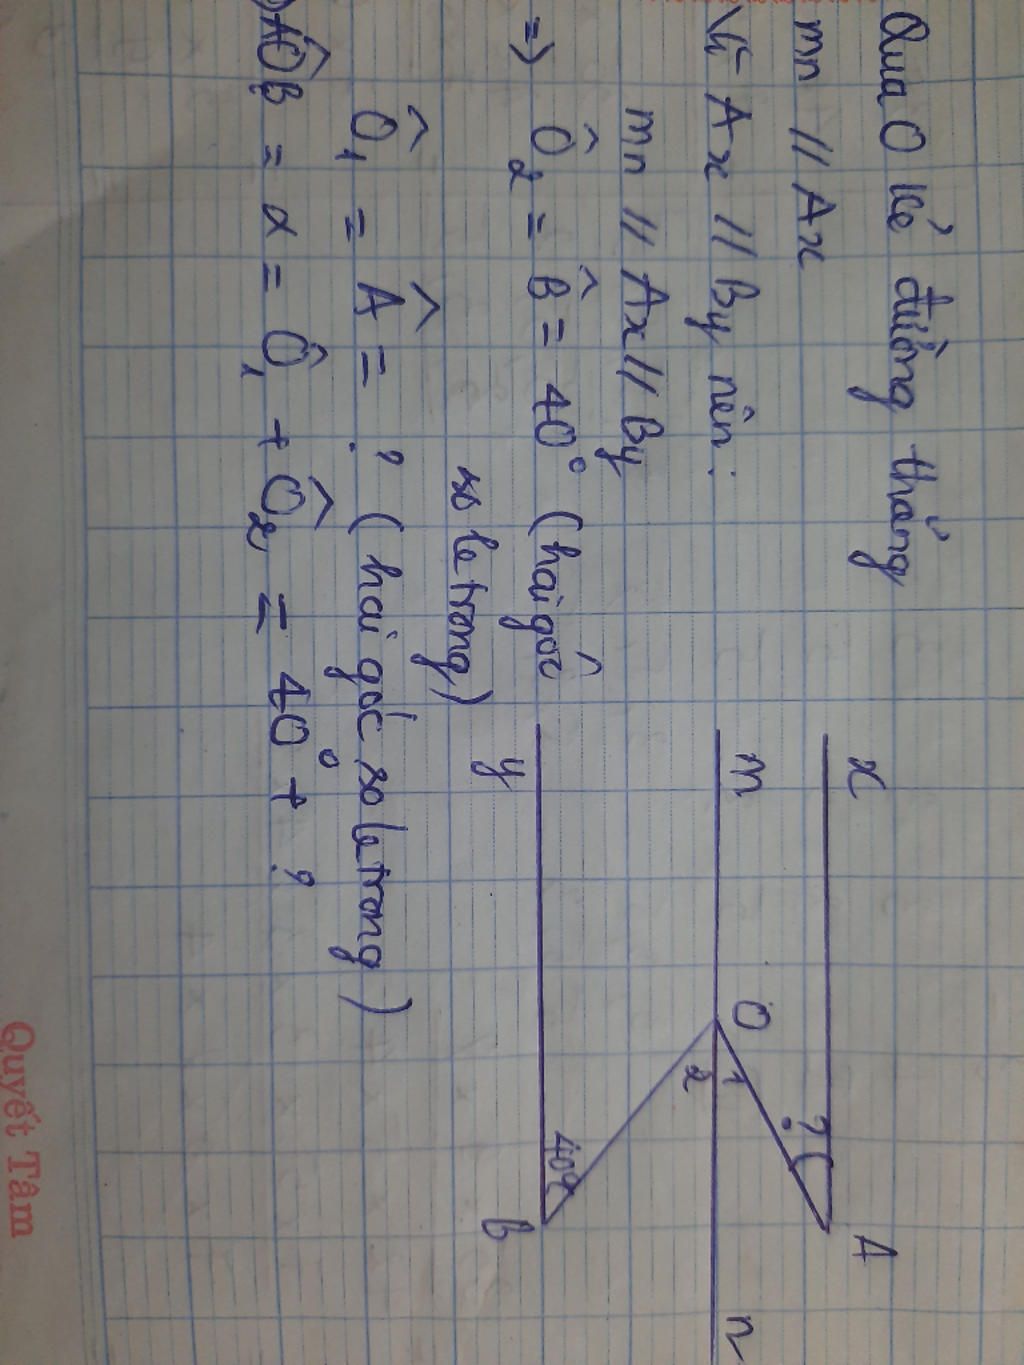 Qua O kẻ đường thẳng
mn // Ax
Vì Ax // By nên:
mn // Ax // By
=> Ô₂ = B̂ = 40° (hai góc
so le trong)
Ô₁ = Â = ? (hai góc so le trong)
AÔB = x = Ô₁ + Ô₂ = 40° + ?
x
A
?
m
O
1
2
n
40°
y
B
Quyết Tâm